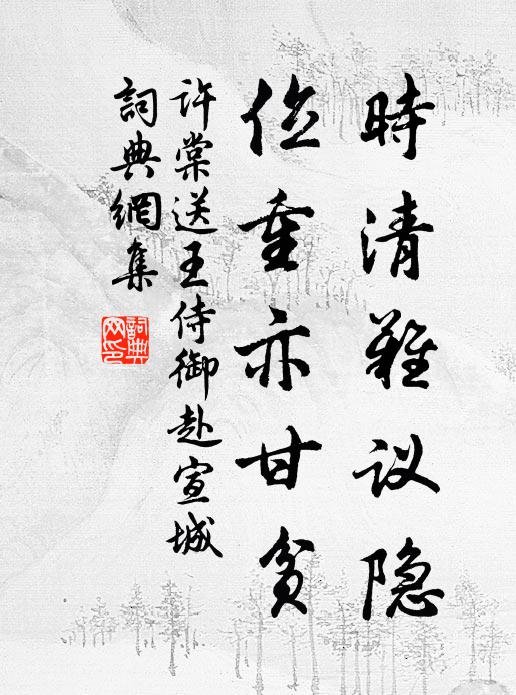 時清難议隐
位重亦甘貧
许棠送王侍御赴宣城
詞典網集
詞典网印